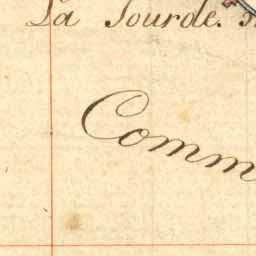 La Sourde.
Comm